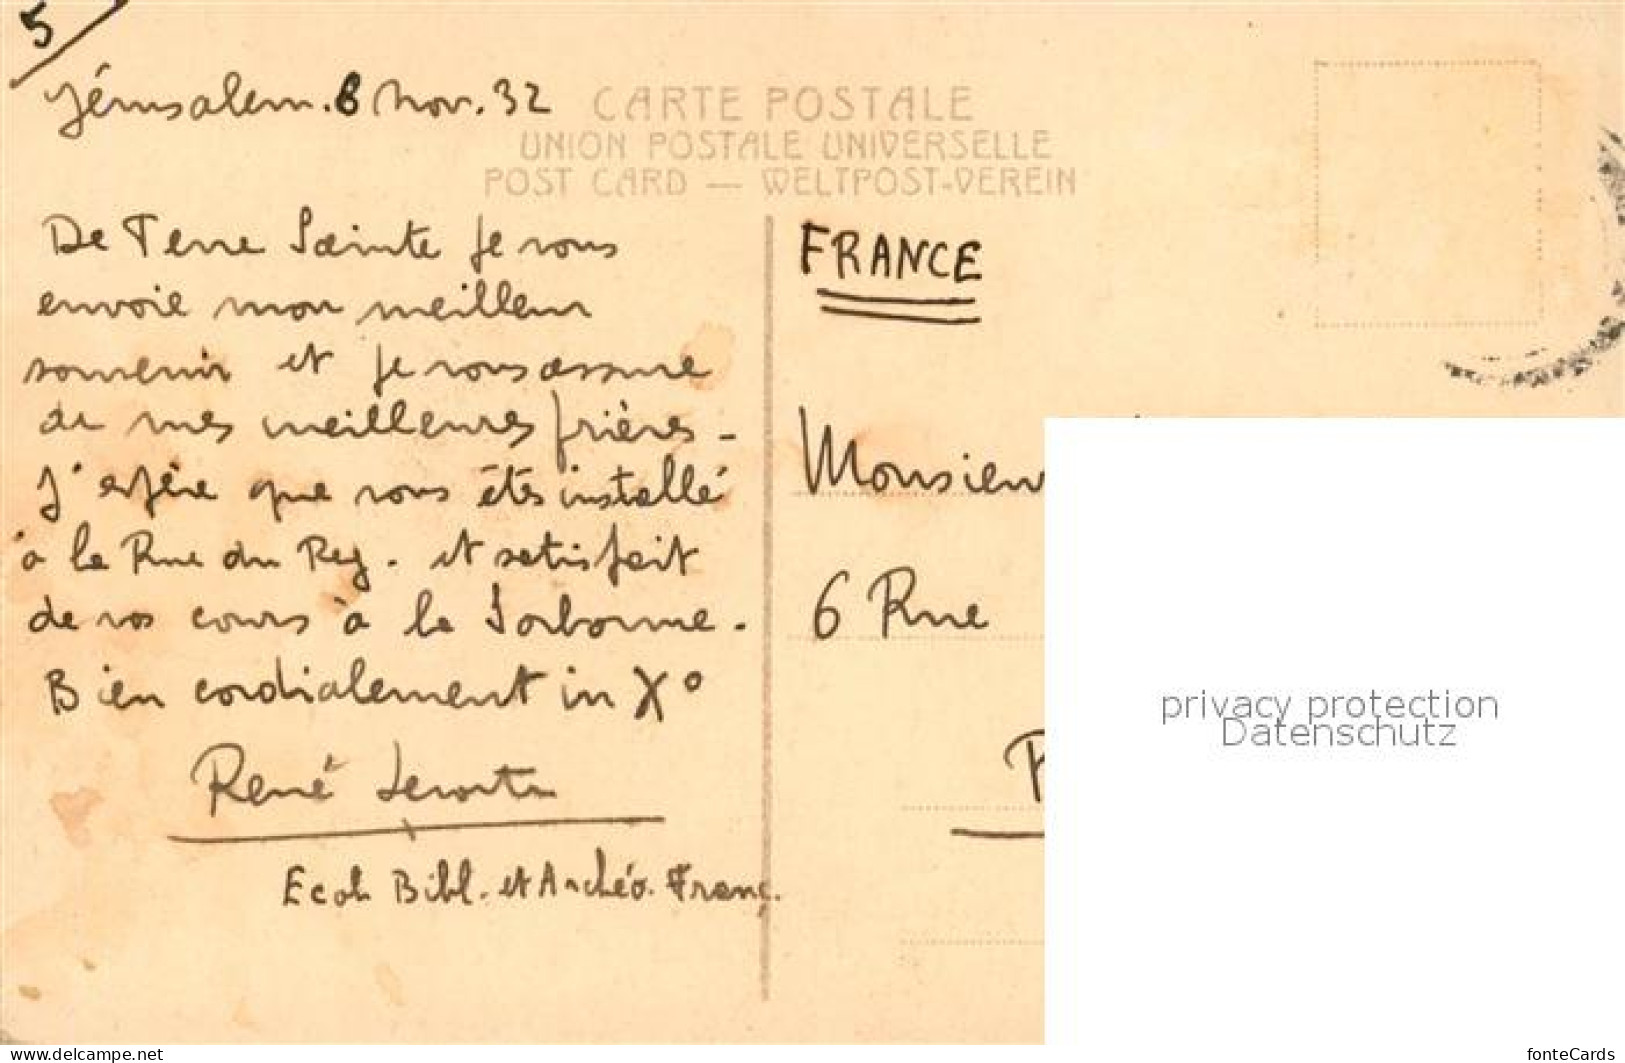 5
Jérusalem. 6 Nov. 32
CARTE POSTALE
UNION POSTALE UNIVERSELLE
POST CARD — WELTPOST-VEREIN
De Terre Sainte je vous
envoie mon meilleur
souvenir et je vous assure
de mes meilleures prières -
J'espère que vous êtes installé
à la Rue du Reg. et satisfait
de vos cours à la Sorbonne.
Bien cordialement in X°
René
Ecole Bibl. et Archéo. Franç.
FRANCE
Monsieur
6 Rue
privacy protection
Datenschutz
www.delcampe.net
fonteCards